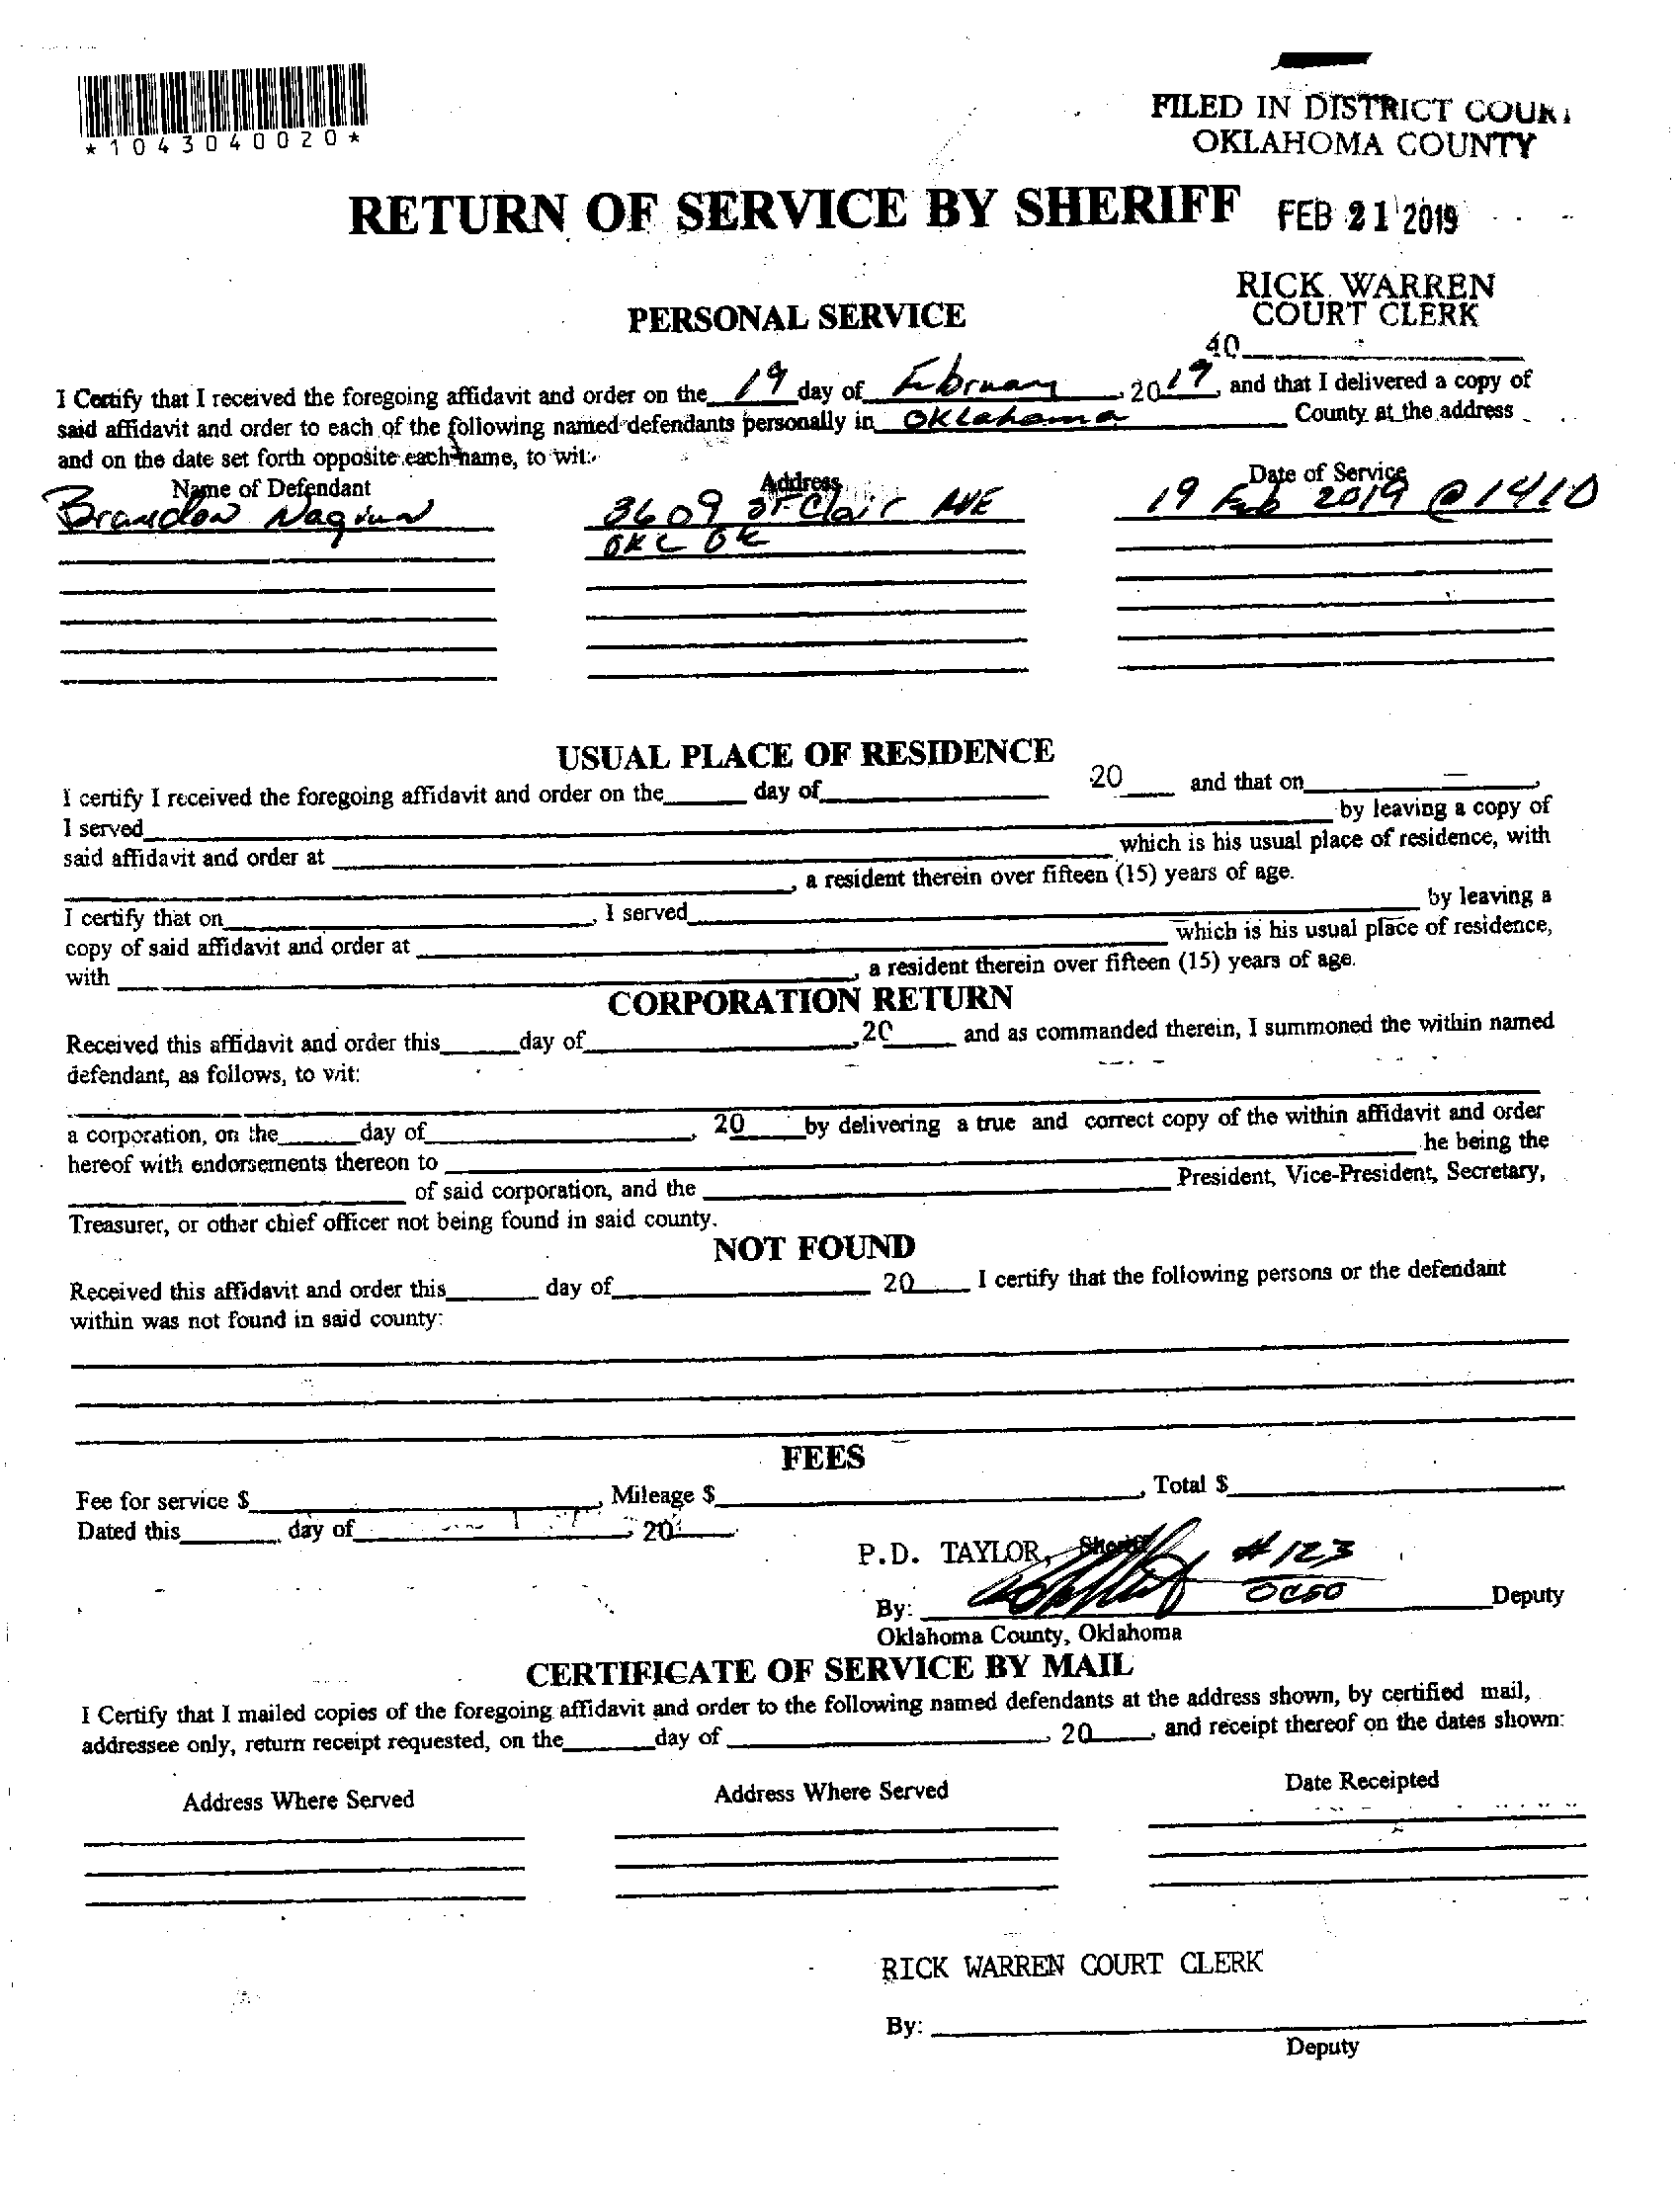 *1043040020*
FILED IN DISTRICT COURT
OKLAHOMA COUNTY
RETURN OF SERVICE BY SHERIFF
FEB 21 2019
RICK WARREN
COURT CLERK
40
PERSONAL SERVICE
I Certify that I received the foregoing affidavit and order on the 19 day of February, 2019, and that I delivered a copy of
said affidavit and order to each of the following named defendants personally in Oklahoma County at the address
and on the date set forth opposite each name, to wit:
Name of Defendant Address Date of Service
Brandon 3609 St Clair AVE 19 Feb 2019 @ 1410
OKC OK
USUAL PLACE OF RESIDENCE
I certify I received the foregoing affidavit and order on the day of 20 and that on ,
I served by leaving a copy of
said affidavit and order at which is his usual place of residence, with
, a resident therein over fifteen (15) years of age.
I certify that on , I served by leaving a
copy of said affidavit and order at which is his usual place of residence,
with , a resident therein over fifteen (15) years of age.
CORPORATION RETURN
Received this affidavit and order this day of , 20 and as commanded therein, I summoned the within named
defendant, as follows, to wit:
a corporation, on the day of , 20 by delivering a true and correct copy of the within affidavit and order
hereof with endorsements thereon to he being the
of said corporation, and the President, Vice-President, Secretary,
Treasurer, or other chief officer not being found in said county.
NOT FOUND
Received this affidavit and order this day of 20 I certify that the following persons or the defendant
within was not found in said county:
FEES
Fee for service $ , Mileage $ , Total $
Dated this , day of , 20
P.D. TAYLOR, Sheriff #123
By: OCSO Deputy
Oklahoma County, Oklahoma
CERTIFICATE OF SERVICE BY MAIL
I Certify that I mailed copies of the foregoing affidavit and order to the following named defendants at the address shown, by certified mail,
addressee only, return receipt requested, on the day of , 20 , and receipt thereof on the dates shown:
Address Where Served Address Where Served Date Receipted
RICK WARREN COURT CLERK
By:
Deputy